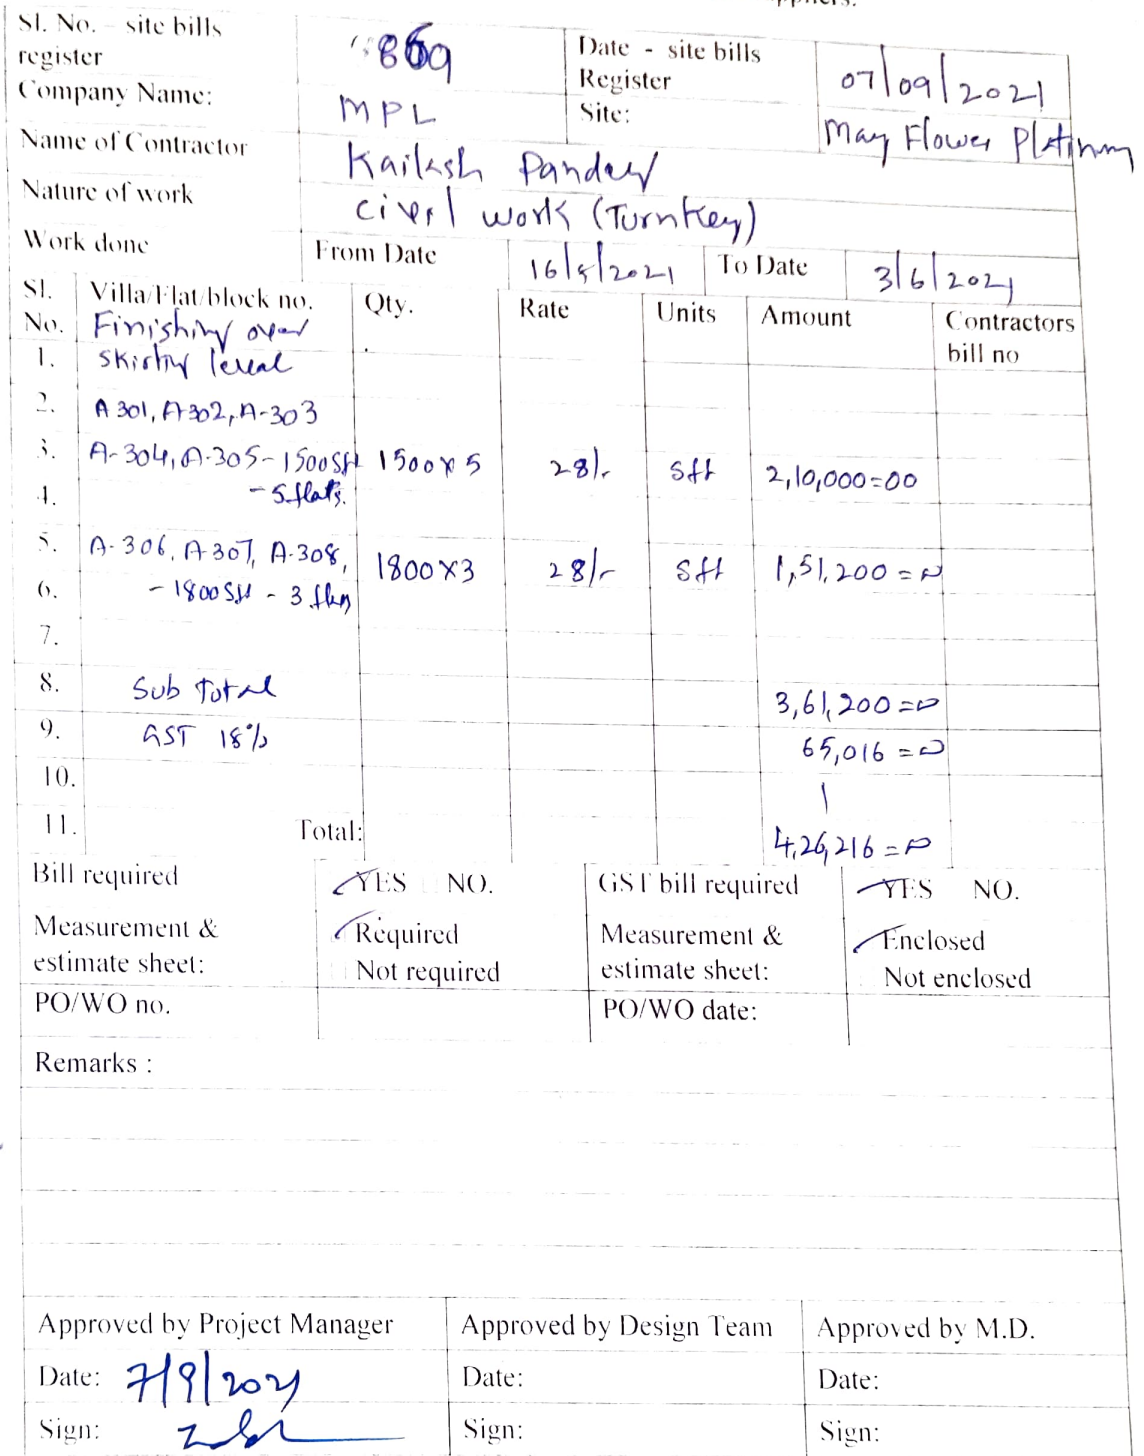 Sl. No. – site bills register 869 Date - site bills Register 07/09/2021
Company Name: MPL Site: May Flower Platinum
Name of Contractor Kailash Pandey
Nature of work civil work (Turnkey)
Work done From Date 16/5/2021 To Date 3/6/2021
Sl. No. Villa/Flat/block no. Qty. Rate Units Amount Contractors bill no
Finishing over
1. skirting level
2. A 301, A 302, A-303
3. A-304, A-305 - 1500 Sft 1500 x 5 28/- sft 2,10,000=00
4. - 5 flats.
5. A-306, A-307, A-308, 1800 x 3 28/- sft 1,51,200=00
6. - 1800 Sft - 3
7.
8. Sub Total 3,61,200=00
9. GST 18% 65,016=00
10.
11. Total: 4,26,216=00
Bill required YES NO. GST bill required YES NO.
Measurement & estimate sheet: Required Measurement & estimate sheet: Enclosed
Not required Not enclosed
PO/WO no. PO/WO date:
Remarks :
Approved by Project Manager Approved by Design Team Approved by M.D.
Date: 7/9/2021 Date: Date:
Sign: Sign: Sign: